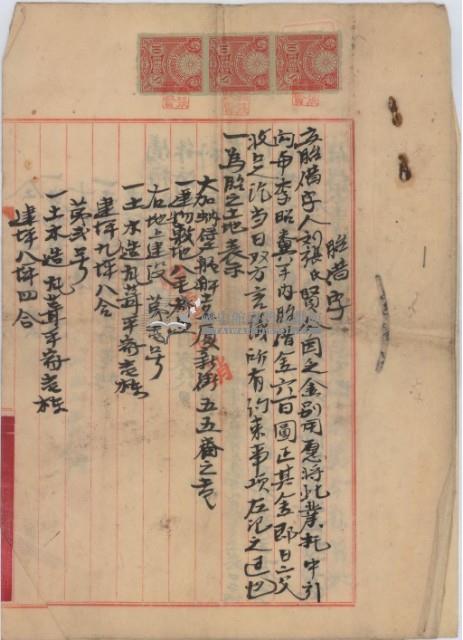 胎借字
立胎借字人劉張氏賢今因乏金別用愿將此業托中引
向与李昭真手內胎借金六百圓正其金即日交
收足訖当日双方言議所有約束事項左記之通也
一為胎之土地表示
大加蚋堡艋舺舊後新街五五番之
一建物敷地八毛
右地上建設 第壹号
一土木造瓦葺平家壱棟
建坪九坪八合
第貳号
一土木造瓦葺平家壱棟
建坪八坪四合